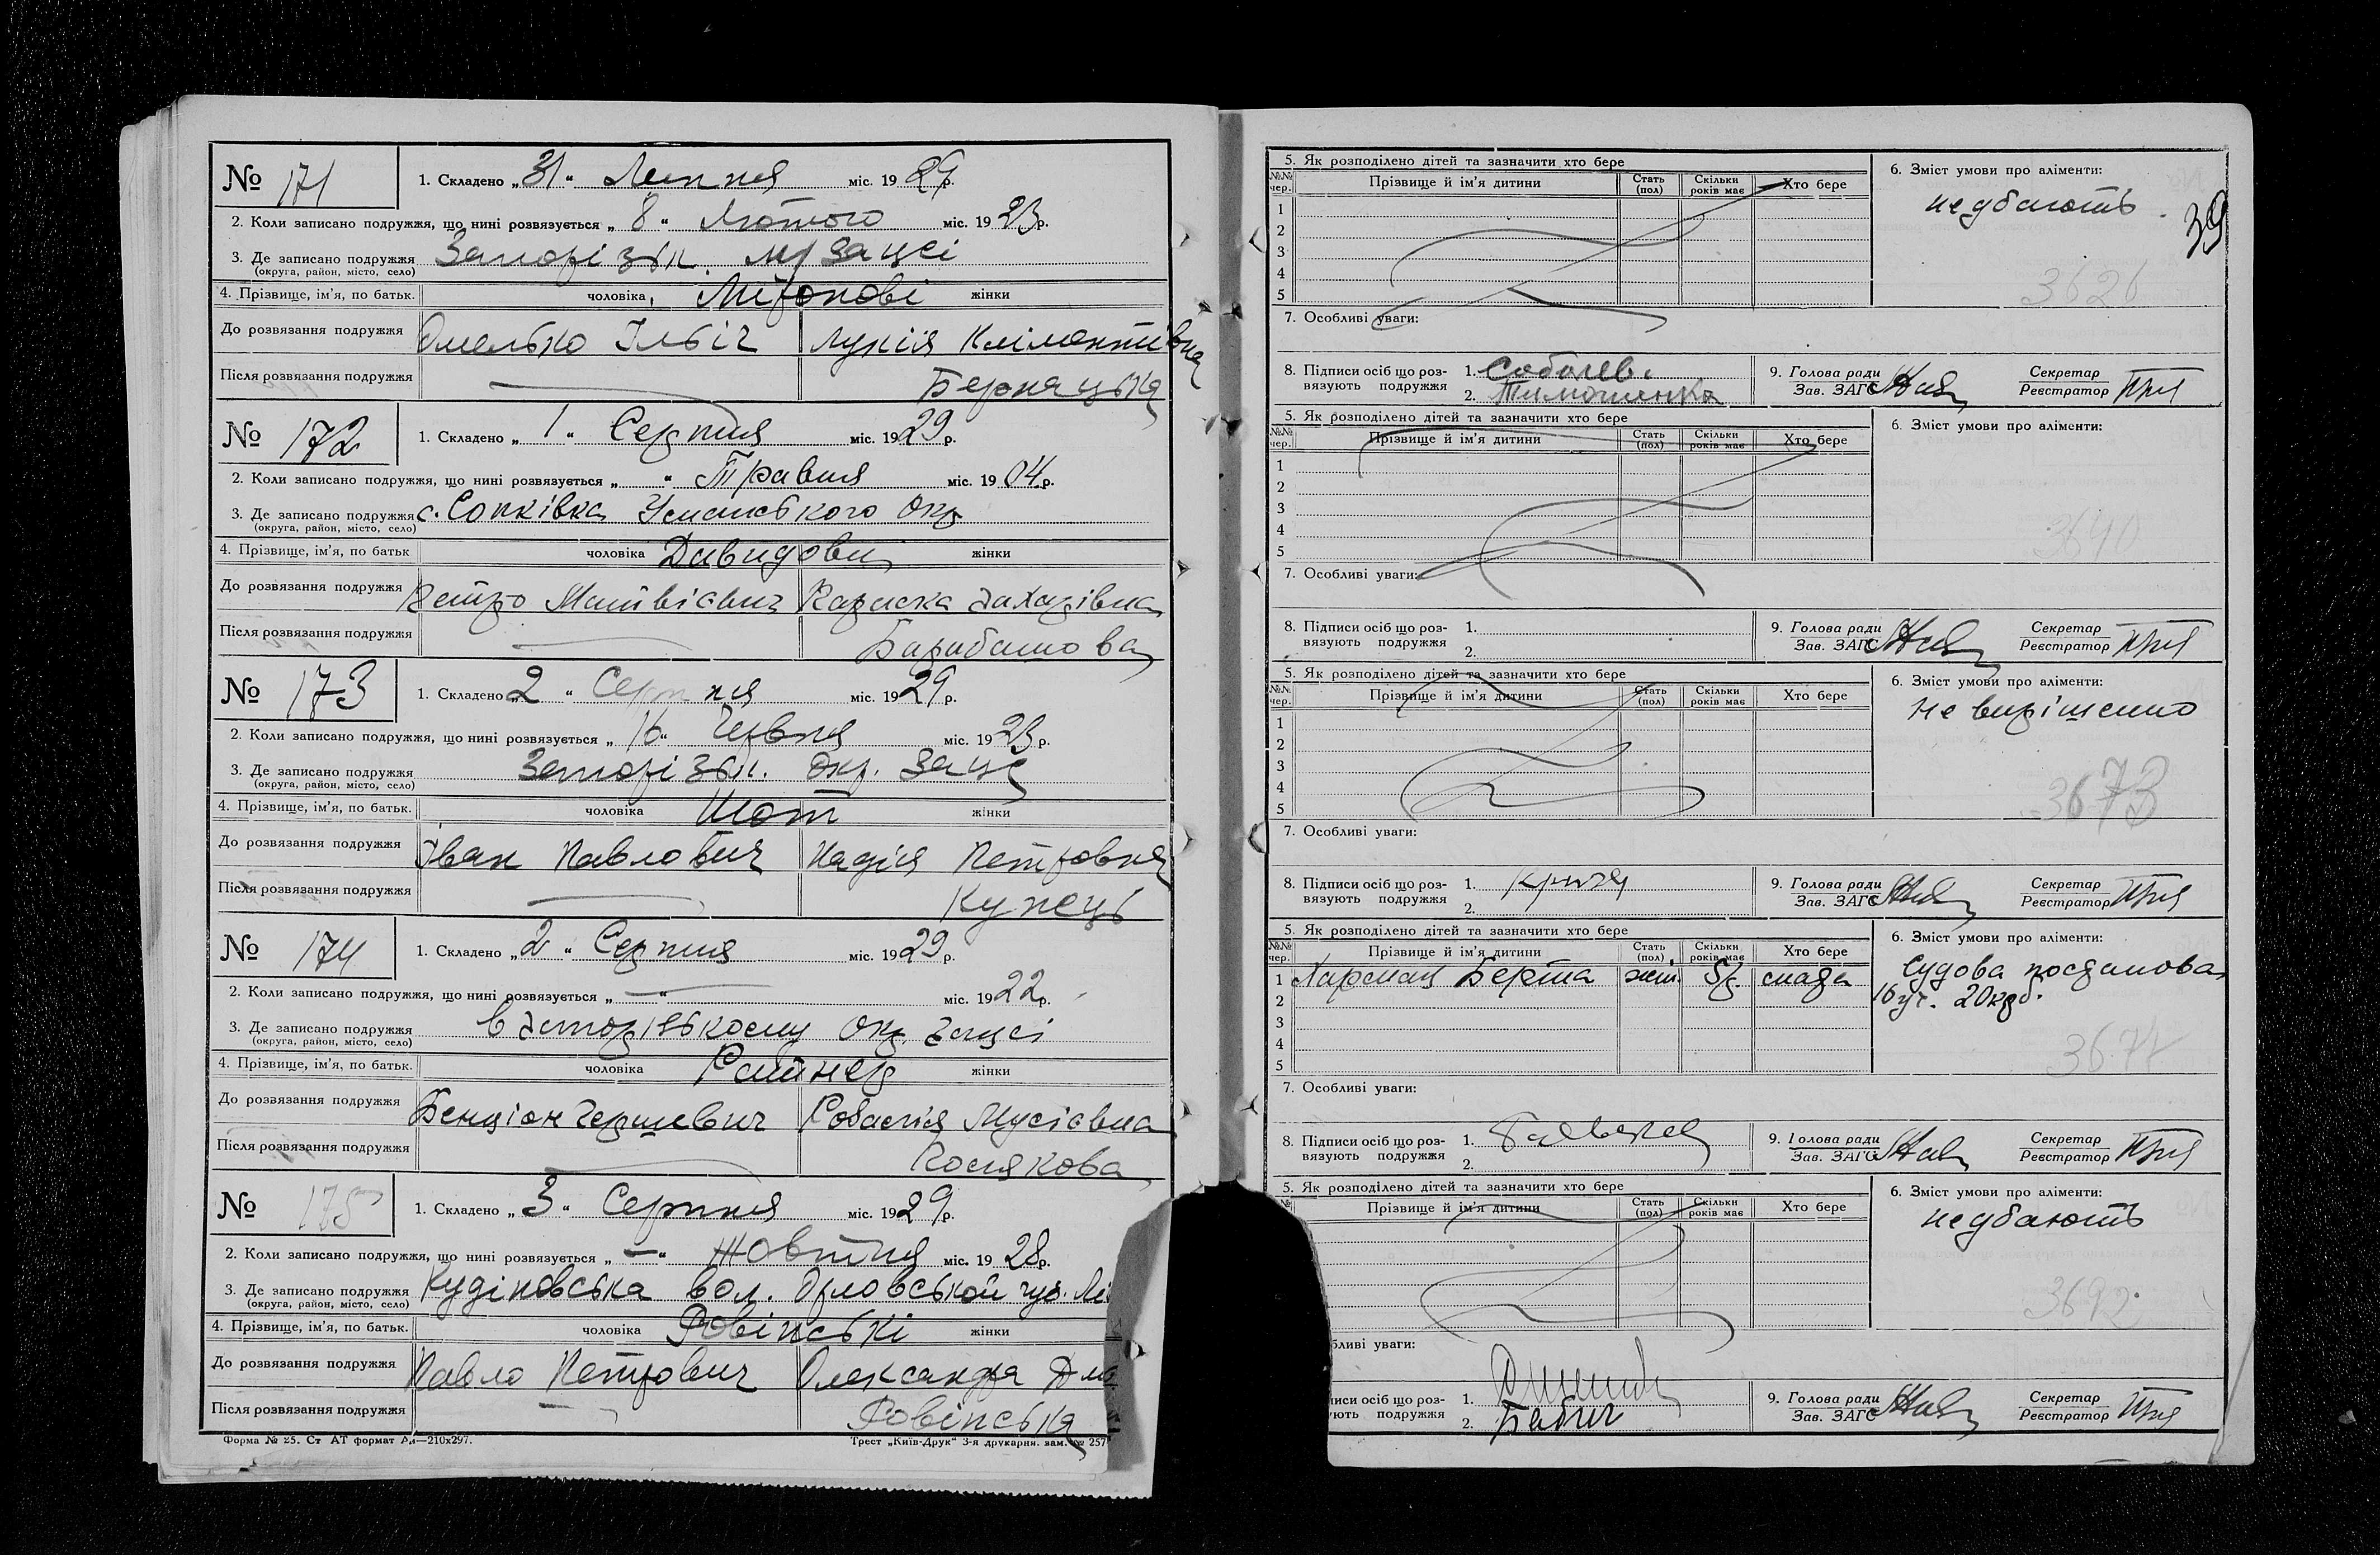 № 171
1. Складено „ 31 “ Липня міс. 19 29 р.
2. Коли записано подружжя, що нині розвязується „ 8 “ Лютого міс. 19 23 р.
3. Де записано подружжя Запорізьк. загсі
(округа, район, місто, село)
4. Прізвище, ім’я, по батьк. чоловіка жінки
До розвязання подружжя Омелько Ільіч Лукія Кліментівна
Після розвязання подружжя
№ 172
1. Складено „ 1 “ Серпня міс. 19 29 р.
2. Коли записано подружжя, що нині розвязується „ “ Травня міс. 19 04 р.
3. Де записано подружжя с. Сопківка Уманського Окр
(округа, район, місто, село)
4. Прізвище, ім’я, по батьк чоловіка Давидови жінки
До розвязання подружжя Петро Матвієвич Параска Захарівна
Після розвязання подружжя Барабашова
№ 173
1. Складено „ 2 “ Серпня міс. 19 29 р.
2. Коли записано подружжя, що нині розвязується „ 16 “ Червня міс. 19 23 р.
3. Де записано подружжя Запорізьк. Окр. Загс
(округа, район, місто, село)
4. Прізвище, ім’я, по батьк. чоловіка Шот жінки
До розвязання подружжя Іван Павлович Надія Петровна
Після розвязання подружжя Купець
№ 174
1. Складено „ 2 “ Серпня міс. 19 29 р.
2. Коли записано подружжя, що нині розвязується „ — “ — міс. 19 22 р.
3. Де записано подружжя в Запорізькому Окр. Загсі
(округа, район, місто, село)
4. Прізвище, ім’я, по батьк. чоловіка жінки
До розвязання подружжя Бенціон Гершевич Мусієвна
Після розвязання подружжя
№ 175
1. Складено „ 3 “ Серпня міс. 19 29 р.
2. Коли записано подружжя, що нині розвязується „ — “ Жовтня міс. 19 28 р.
3. Де записано подружжя вол. Орловськой губ.
(округа, район, місто, село)
4. Прізвище, ім’я, по батьк. чоловіка Ровінські жінки
До розвязання подружжя Павло Петрович Олександра
Після розвязання подружжя Ровінська
Форма № 25. Ст АТ формат А4—210х297. Трест „Київ-Друк“ 3-я друкарня. зам. № 257
39
5. Як розподілено дітей та зазначити хто бере
№№ чер. Прізвище й ім’я дитини Стать (пол) Скільки років має Хто бере
1
2
3
4
5
6. Зміст умови про аліменти:
не дбають
3626
7. Особливі уваги:
8. Підписи осіб що розвязують подружжя 1. Соболев
2. Тимошенко
9. Голова ради
Зав. ЗАГС
Секретар
Реєстратор
5. Як розподілено дітей та зазначити хто бере
№№ чер. Прізвище й ім’я дитини Стать (пол) Скільки років має Хто бере
1
2
3
4
5
6. Зміст умови про аліменти:
3640
7. Особливі уваги:
8. Підписи осіб що розвязують подружжя 1.
2.
9. Голова ради
Зав. ЗАГС
Секретар
Реєстратор
5. Як розподілено дітей та зазначити хто бере
№№ чер. Прізвище й ім’я дитини Стать (пол) Скільки років має Хто бере
1
2
3
4
5
6. Зміст умови про аліменти:
не вирішено
3673
7. Особливі уваги:
8. Підписи осіб що розвязують подружжя 1.
2.
9. Голова ради
Зав. ЗАГС
Секретар
Реєстратор
5. Як розподілено дітей та зазначити хто бере
№№ чер. Прізвище й ім’я дитини Стать (пол) Скільки років має Хто бере
1 Берта жін. 5 р.
2
3
4
5
6. Зміст умови про аліменти:
Судова постанова
16 уч. 20 крб.
3677
7. Особливі уваги:
8. Підписи осіб що розвязують подружжя 1.
2.
9. Голова ради
Зав. ЗАГС
Секретар
Реєстратор
5. Як розподілено дітей та зазначити хто бере
Прізвище й ім’я дитини Стать (пол) Скільки років має Хто бере
6. Зміст умови про аліменти:
не дбають
3692
бливі уваги:
писи осіб що розують подружжя 1.
2. Бабич
9. Голова ради
Зав. ЗАГС
Секретар
Реєстратор